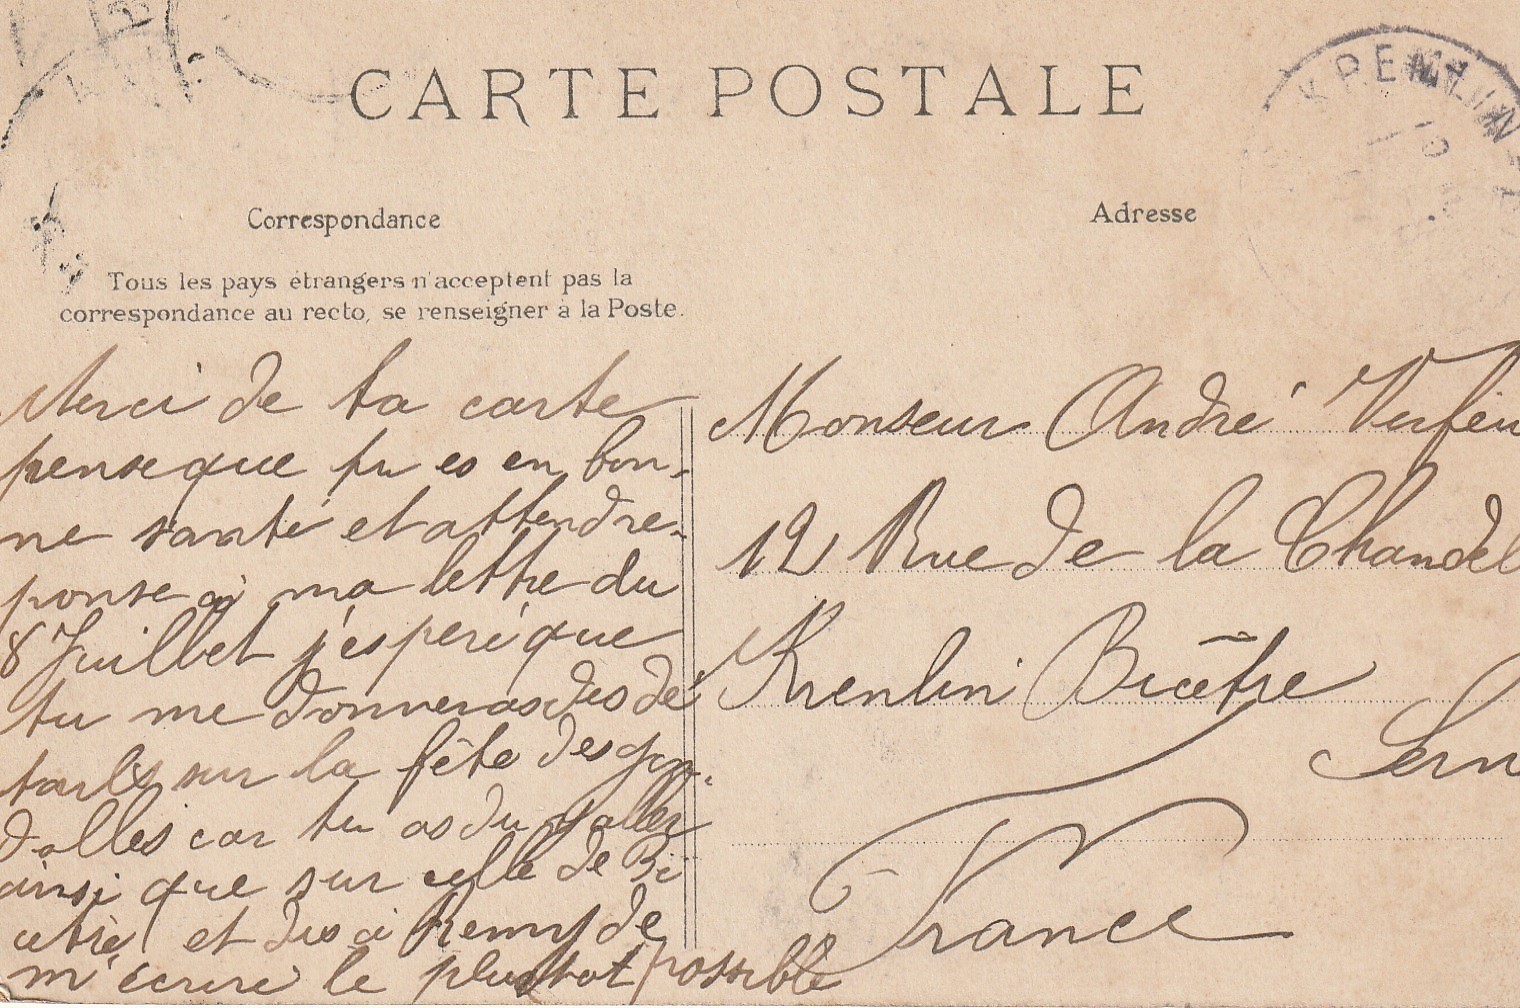 CARTE POSTALE
KREMLIN
Correspondance
Adresse
Tous les pays étrangers n'acceptent pas la
correspondance au recto, se renseigner à la Poste.
Merci de ta carte
pense que tu es en bon-
ne santé et attend re-
ponse à ma lettre du
8 Juillet j'esperé que
tu me donneras des dé
tails sur la fête des
car tu as du y aller
ainsi que sur celle de Bi
cetre et dis à Remy de
m'écrire le plustot possible
Monsieur André
12 Rue de la Chandel
Kremlin Bicêtre
Sein
France